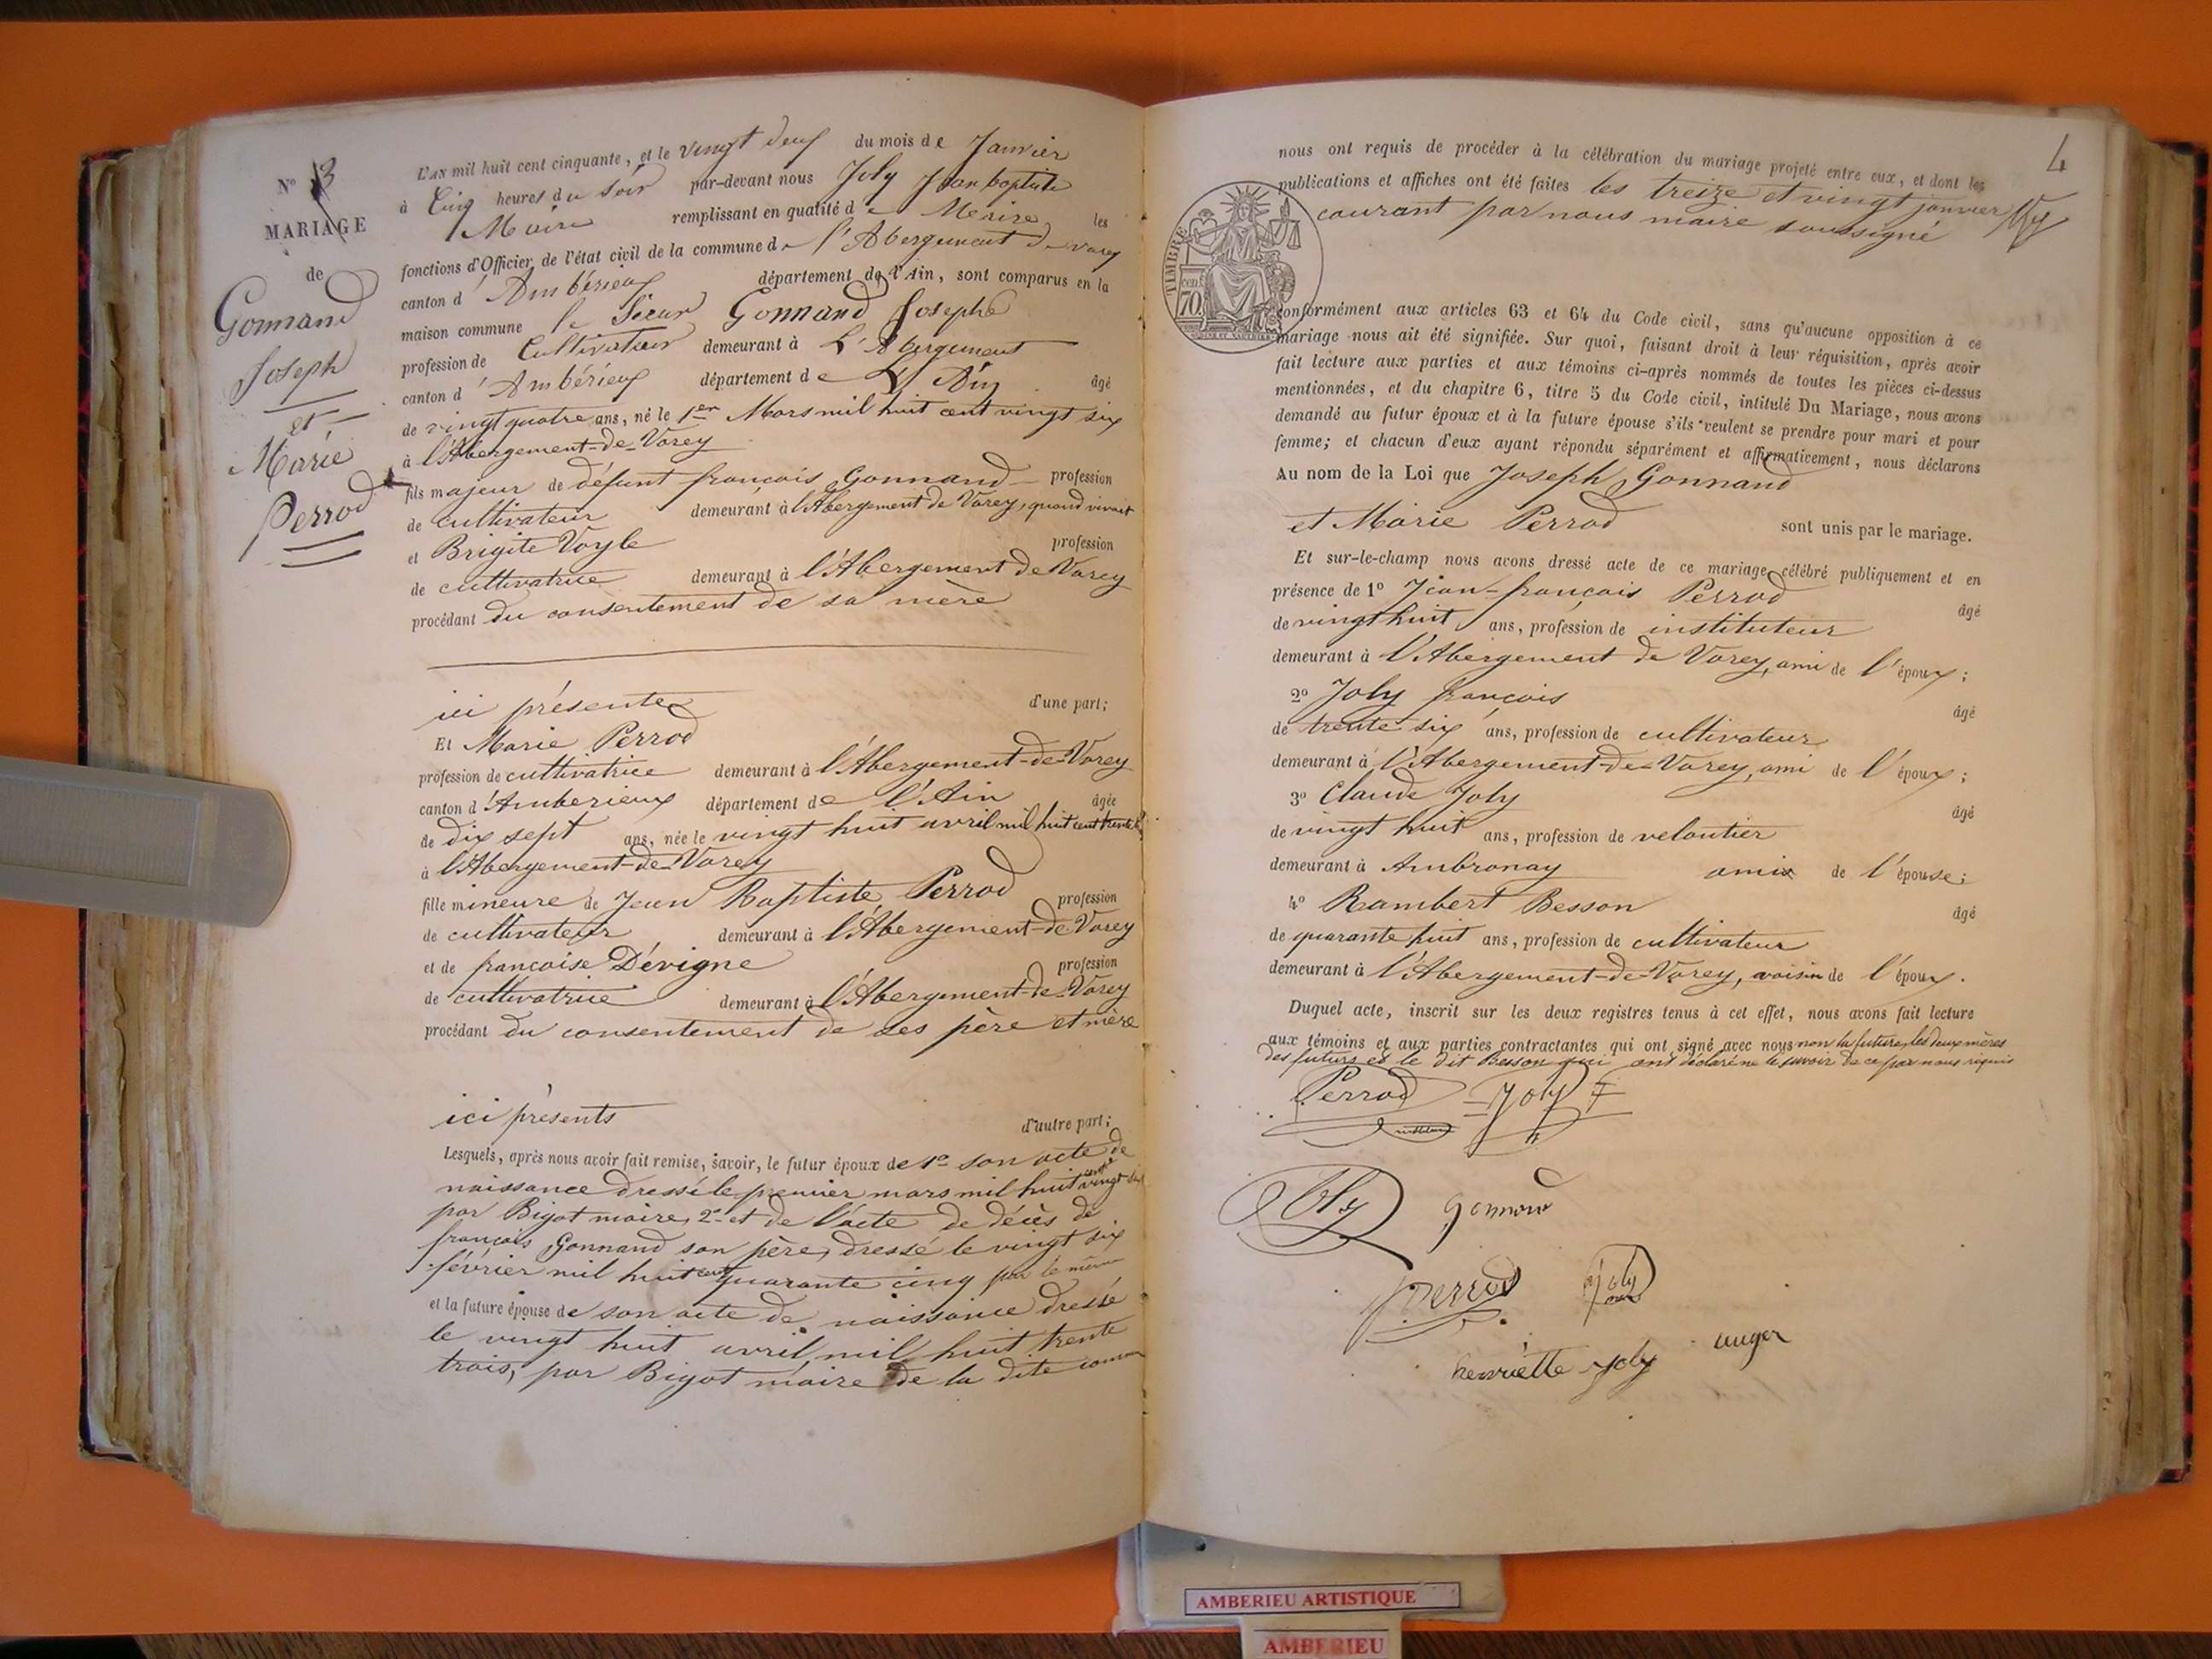 N° 3
MARIAGE
de
Gonnand
Joseph
et
Marie
Perrod
L'AN mil huit cent cinquante, et le vingt deux du mois de Janvier
à Cinq heures du soir par-devant nous Joly Jean baptiste
Maire remplissant en qualité de Maire les
fonctions d'Officier de l'état civil de la commune de l'Abergement de varey
canton d'Ambérieux département de l'Ain, sont comparus en la
maison commune le Sieur Gonnand Joseph
profession de Cultivateur demeurant à L'Abergement
canton d'Ambérieux département de L'Ain âgé
de vingt quatre ans, né le 1er Mars mil huit cent vingt six
à l'Abergement-de-Varey
fils majeur de défunt françois Gonnand profession
de cultivateur demeurant à l'Abergement de Varey, quand vivait
et Brigite Voyle profession
de cultivatrice demeurant à l'Abergement de Varey
procédant du consentement de sa mère
ici présente d'une part;
Et Marie Perrod
profession de cultivatrice demeurant à l'Abergement-de-Varey
canton d'Amberieux département de l'Ain âgée
de dix sept ans, née le vingt huit avril mil huit cent trente
à l'Abergement-de-Varey
fille mineure de Jean Baptiste Perrod profession
de cultivateur demeurant à l'Abergement-de-Varey
et de françoise Dévigne profession
de cultivatrice demeurant à l'Abergement-de-Varey
procédant du consentement de ses père et mère
ici présents d'autre part;
Lesquels, après nous avoir fait remise, savoir, le futur époux de 1° son acte de
naissance dressé le premier mars mil huit cent vingt six
par Bigot maire, 2° et de l'acte de décès de
françois Gonnand son père, dressé le vingt six
février mil huit cent quarante cinq par le même
et la future épouse de son acte de naissance dressé
le vingt huit avril mil huit trente
trois, par Bigot maire de la dite commune
4
nous ont requis de procéder à la célébration du mariage projeté entre eux, et dont les
publications et affiches ont été faites les treize et vingt janvier
courant par nous maire soussigné
TIMBRE
70 cent
conformément aux articles 63 et 64 du Code civil, sans qu'aucune opposition à ce
mariage nous ait été signifiée. Sur quoi, faisant droit à leur réquisition, après avoir
fait lecture aux parties et aux témoins ci-après nommés de toutes les pièces ci-dessus
mentionnées, et du chapitre 6, titre 5 du Code civil, intitulé Du Mariage, nous avons
demandé au futur époux et à la future épouse s'ils veulent se prendre pour mari et pour
femme; et chacun d'eux ayant répondu séparément et affirmativement, nous déclarons
Au nom de la Loi que Joseph Gonnand
et Marie Perrod sont unis par le mariage.
Et sur-le-champ nous avons dressé acte de ce mariage célébré publiquement et en
présence de 1° Jean-françois Perrod âgé
de vingt huit ans, profession de instituteur
demeurant à l'Abergement de Varey, ami de l'époux;
2° Joly françois âgé
de trente six ans, profession de cultivateur
demeurant à l'Abergement-de-Varey, ami de l'époux;
3° Claude Joly âgé
de vingt huit ans, profession de veloutier
demeurant à Ambronay amis de l'épouse;
4° Rambert Besson âgé
de quarante huit ans, profession de cultivateur
demeurant à l'Abergement-de-Varey, voisin de l'époux.
Duquel acte, inscrit sur les deux registres tenus à cet effet, nous avons fait lecture
aux témoins et aux parties contractantes qui ont signé avec nous non la future, les deux mères
des futurs et le dit Besson qui ont déclaré ne le savoir de ce par nous requis
Perrod Joly F
Joly gonnand
perrod Joly
henriette joly auger
AMBERIEU ARTISTIQUE
AMBERIEU